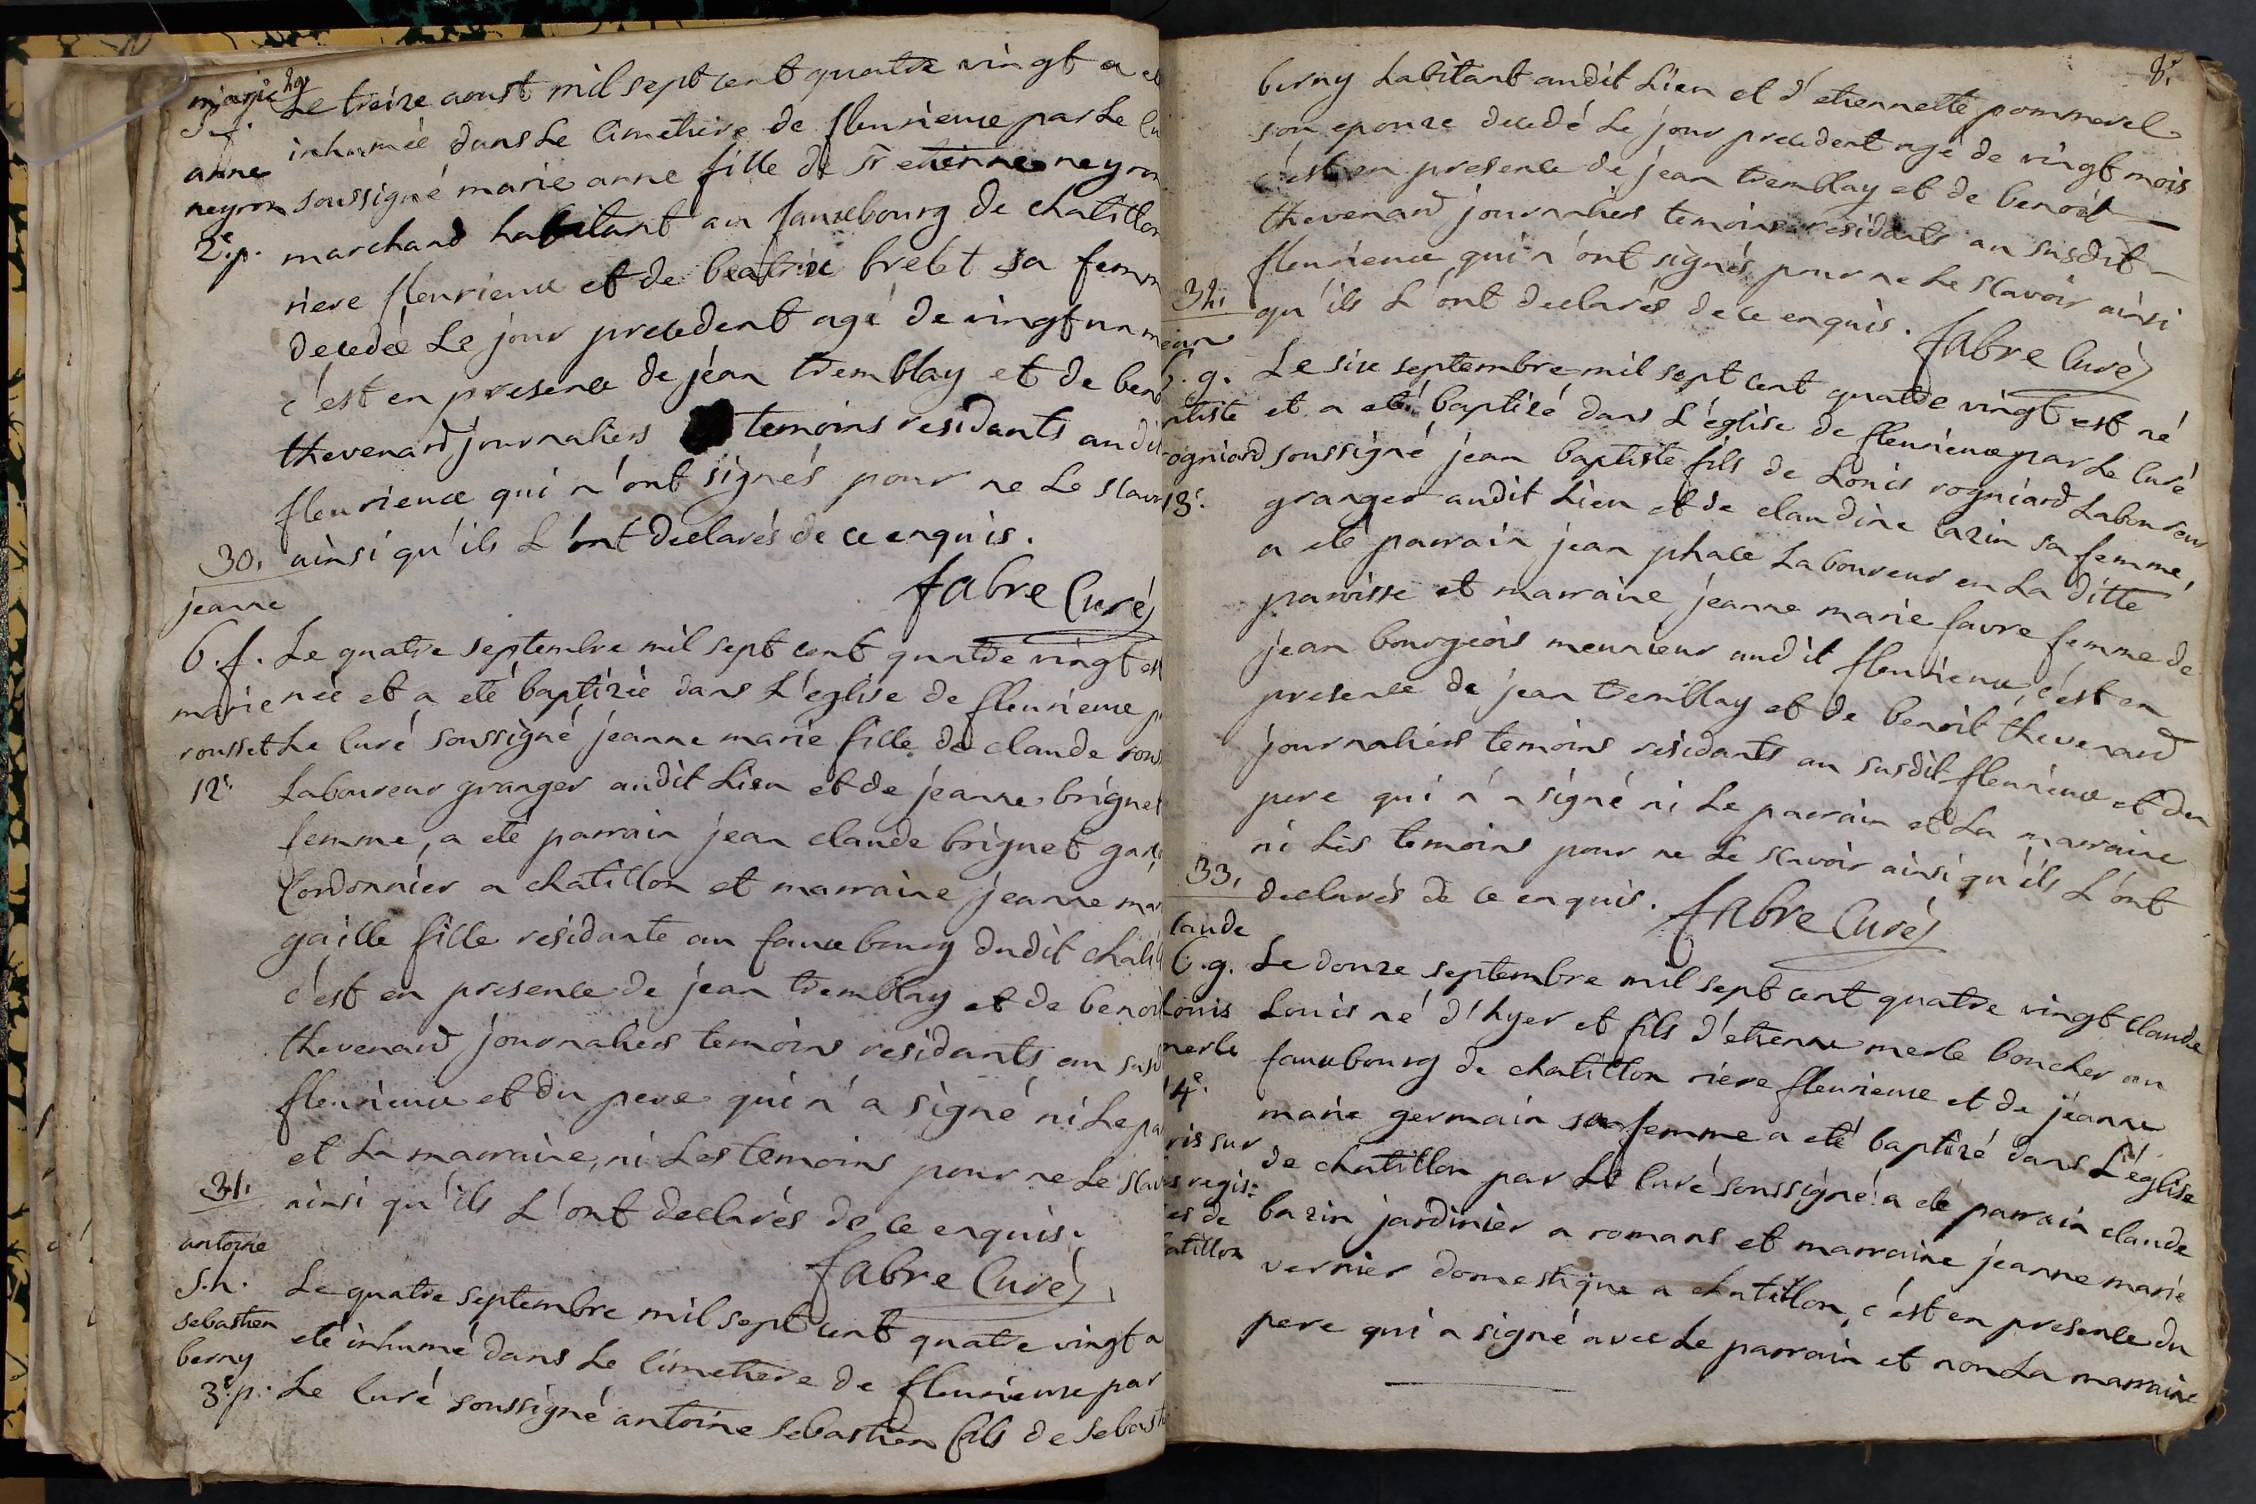 marie 29
s.f.
anne
neyron
2e. p.
Le treize aoust mil sept cent quatre vingt a et
inhumée dans Le cimetiere de fleurieux par Le cu
soussigné marie anne fille de sr etienne neyron
marchand habitant au fauxbourg de chatillon
riere fleurieux et de beatrix brebt sa femm
decedée Le jour precedent agé de vingt un m
c'est en presence de jean tremblay et de beno
thevenard journaliers temoins residants au dit
fleurieux qui n'ont signés pour ne Le scavo
ainsi qu'ils L'ont declarés de ce enquis.
fabre Curé
30.
jeanne
b.f.
marie
rousset
12e
Le quatre septembre mil sept cent quatre vingt est
née et a eté baptizée dans L'eglise de fleurieux p
Le curé soussigné jeanne marie fille de claude rous
Laboureur granger audit Lieu et de jeanne brignet
femme, a eté parrain jean claude brignet garç
Cordonnier a chatillon et marraine jeanne mar
gaille fille residante au fauxbourg dudit chatil
c'est en presence de jean tremblay et de benoit
thevenard journaliers temoins residants au susd
fleurieux et du pere qui n'a signé ni Le pa
et La marraine, ni Les temoins pour ne Le scav
ainsi qu'ils L'ont declarés de ce enquis.
fabre Curé
31.
antoine
s.h.
sebastien
berny
3e. p.
Le quatre septembre mil sept cent quatre vingt a
eté inhumé dans Le cimetiere de fleurieux par
Le curé soussigné antoine sebastien fils de sebasti
8e
berny habitant audit Lieu et d'etiennette pommerel
son epouze decedé Le jour precedent agé de vingt mois
c'est en presence de jean tremblay et de benoit
thevenard journaliers temoins residants au susdit
fleurieux qui n'ont signés pour ne Le scavoir ainsi
qu'ils L'ont declarés de ce enquis.
fabre Curé
32.
jean
b.g.
ptiste
rogniard
13e
Le six septembre mil sept cent quatre vingt est né
et a eté baptizé dans L'église de fleurieux par Le curé
soussigné jean baptiste fils de Louis rogniard Laboureur
granger audit Lieu et de claudine lazin sa femme,
a eté parrain jean phace Laboureur en La ditte
paroisse et marraine jeanne marie favre femme de
jean bourgeois meunieur audit fleurieux, c'est en
presence de jean tremblay et de benoit thevenard
journaliers temoins residants au susdit fleurieux et du
pere qui n'a signé ni Le parrain et La marraine
ni Les temoins pour ne Le scavoir ainsi qu'ils L'ont
declarés de ce enquis.
fabre Curé
33.
laude
b.g.
Louis
merle
14e.
ris sur
s regis:
es de
atillon
Le douze septembre mil sept cent quatre vingt claude
Louis né d'hyer et fils d'etienne merle boucher au
fauxbourg de chatillon riere fleurieux et de jeanne
marie germain sa femme a eté baptizé dans L'église
de chatillon par Le curé soussigné: a eté parrain claude
bazin jardinier a romans et marraine jeanne marie
vernier domestique a chatillon, c'est en presence du
pere qui a signé avec Le parrain et non La marraine